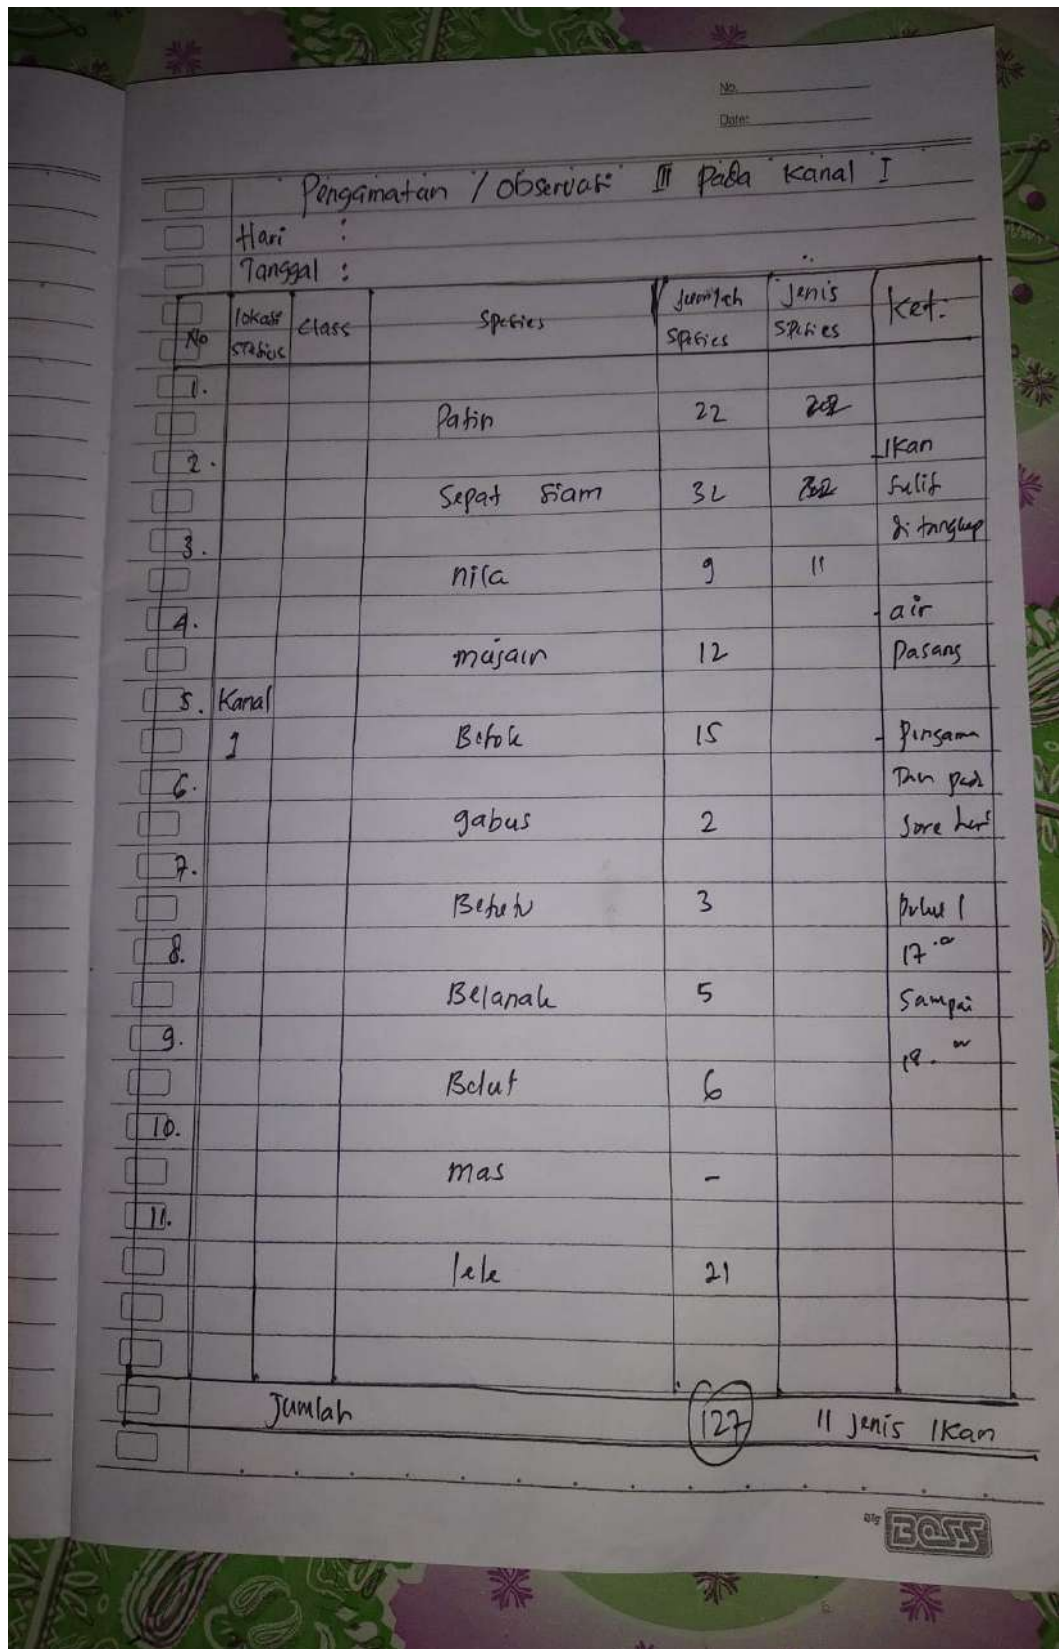 No.
Date:
Pengamatan / observasi III pada kanal I
Hari :
Tanggal :
No lokasi stasius Class Spesies Jumlah Spesies Jenis Spesies Ket:
1.
Patin 22
Ikan
2.
Sepat Siam 32 Sulit
di tangkap
3.
nila 9 11
air
4.
mujair 12 Pasang
5. Kanal
1 Betok 15 - Pengama
6. Tan pada
gabus 2 Sore hari
7.
Betutu 3 Pukul
8. 17.00
Belanak 5 Sampai
9. 18.00
Belut 6
10.
mas -
11.
lele 21
Jumlah 127 11 Jenis Ikan
BOSS